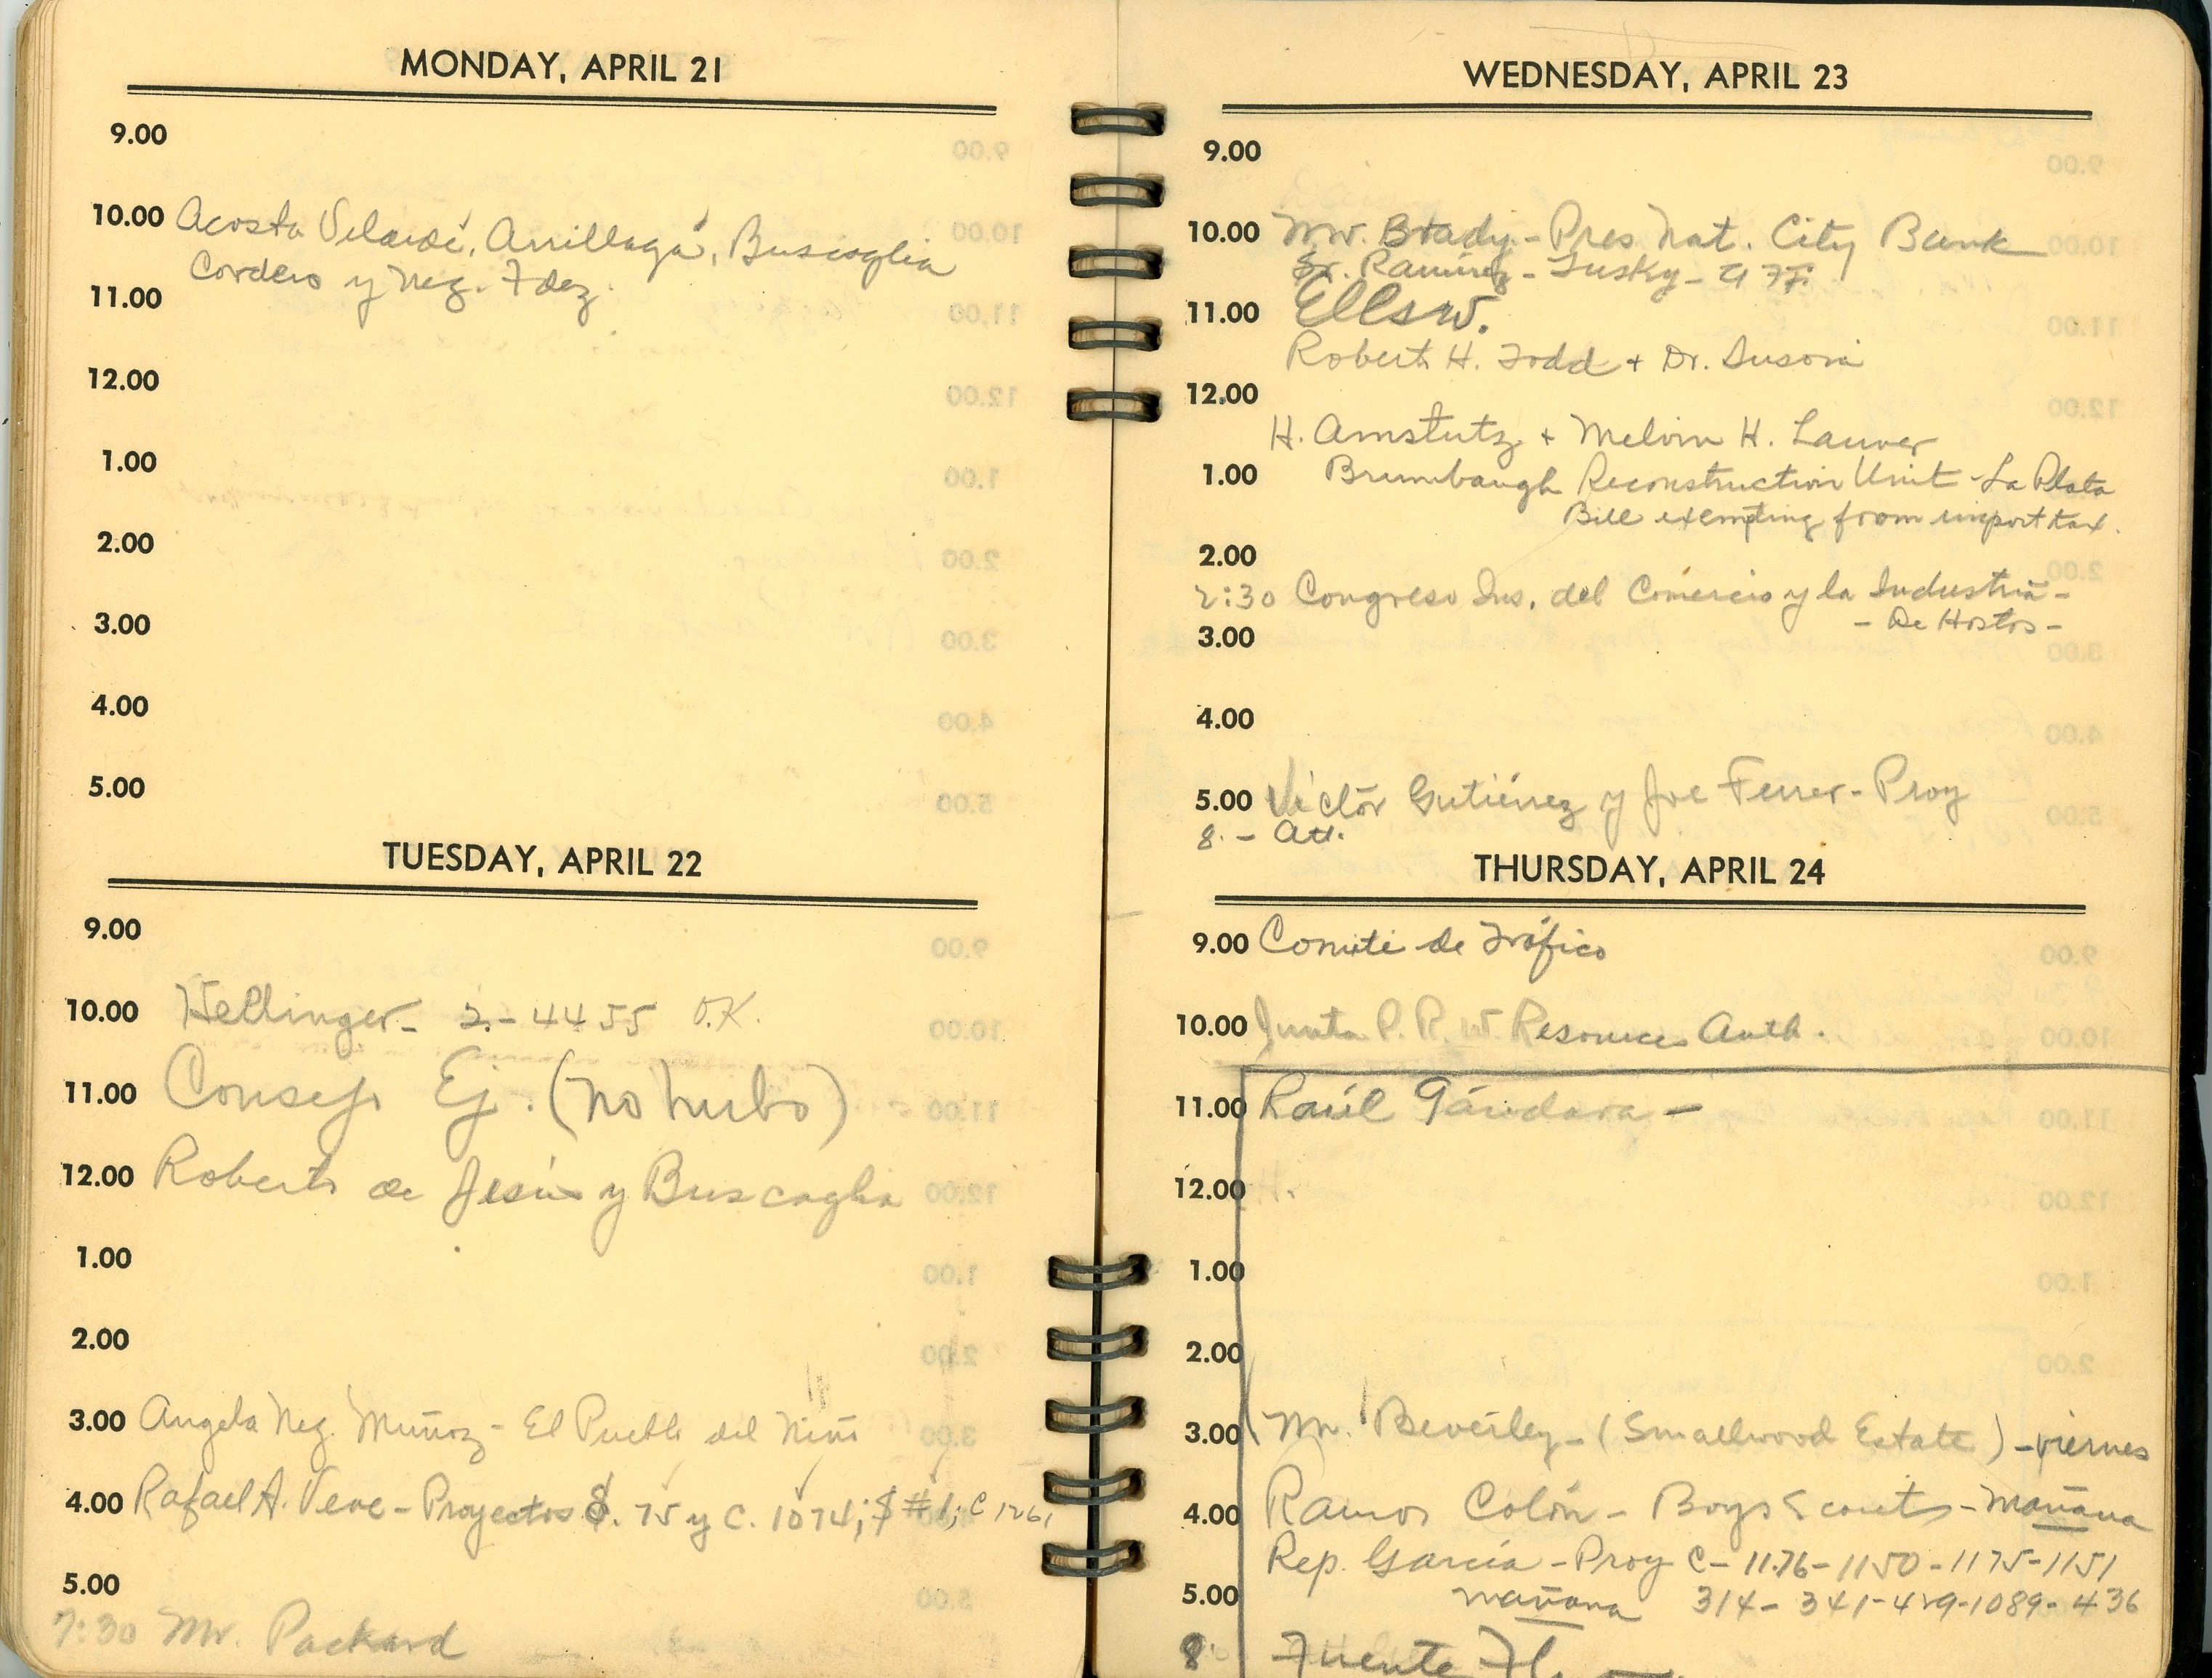 MONDAY, APRIL 21
9.00
10.00 Acosta Velarde, Arrillaga, Buscaglia
Cordero y Neg. Fdez.
11.00
12.00
1.00
2.00
3.00
4.00
5.00
TUESDAY, APRIL 22
9.00
10.00 Hellinger - 2.-4455 O.K.
11.00 Consejo Ej. (no hubo)
12.00 Roberto de Jesús y Buscaglia
1.00
2.00
3.00 Angela Neg. Muñoz - El Pueblo del Niño
4.00 Rafael A. Veve - Proyectos S. 75 y C. 1074; S #1; C 1261
5.00
7:30 Mr. Packard
WEDNESDAY, APRIL 23
9.00
10.00 Mr. Brady - Pres Nat. City Bank
Sr. Ramírez - Lusky -
11.00 Ellsw.
Robert H. Todd + Dr. Susoni
12.00
H. Amstutz + Melvin H. Lauver
1.00 Brumbaugh Reconstruction Unit - La Plata
Bill exempting from import tax.
2.00
2:30 Congreso Ins. del Comercio y la Industria -
- De Hostos -
3.00
4.00
5.00 Víctor Gutiérrez y Joe Ferrer - Proy
8. - Att.
THURSDAY, APRIL 24
9.00 Comité de Tráfico
10.00 Junta P. R. W. Resources Auth.
11.00 Raúl Gándara -
12.00
1.00
2.00
3.00 Mr. Beverley - (Smallwood Estate) - viernes
4.00 Ramos Colón - Boys Scouts - mañana
Rep. García - Proy C - 1176 - 1150 - 1175 - 1151
5.00 mañana 314 - 341 - 429 - 1089 - 436
8. Fuente